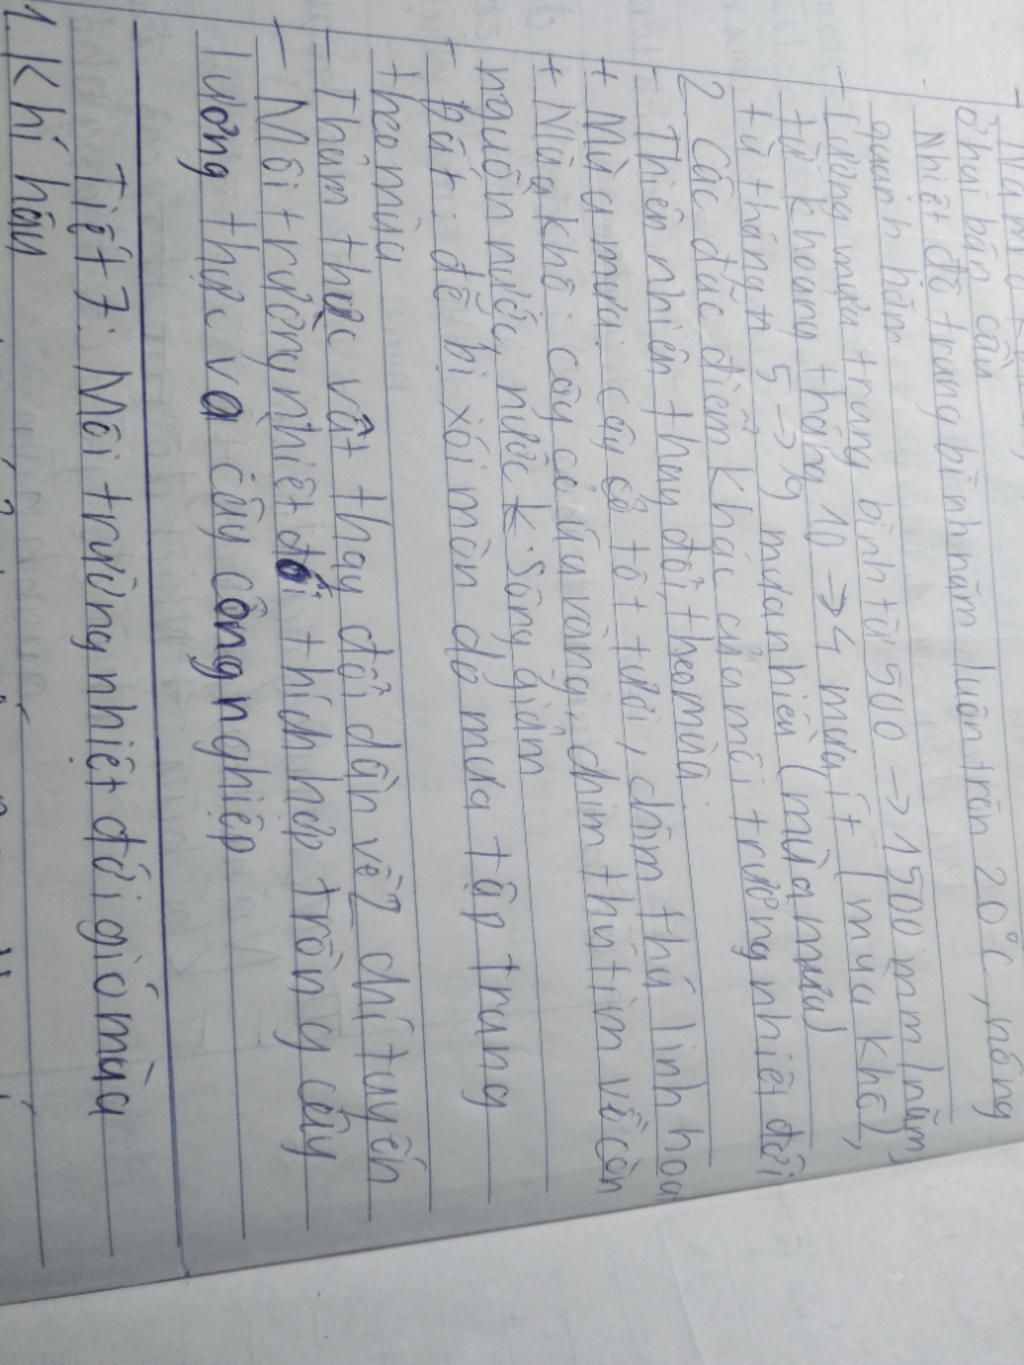 - Nằm ở
ở hai bán cầu
- Nhiệt độ trung bình năm luôn trên 20°C, nóng
quanh năm
- Lượng mưa trung bình từ 500 -> 1500 mm/năm,
từ khoang tháng 10 -> 4 mưa ít (mưa khô),
từ tháng 5 -> 9 mưa nhiều (mùa mưa)
2 Các đặc điểm khác của môi trường nhiệt đới
- Thiên nhiên thay đổi theo mùa.
+ Mùa mưa: cây cỏ tốt tươi, chim thú linh hoạ
+ Mùa khô: cây cỏ úa vàng, chim thú tìm về còn
nguồn nước, nước k. Sông giảm
- Đất: dễ bị xói mòn do mưa tập trung
theo mùa
- Thảm thực vật thay đổi dần về 2 chí tuyến
- Môi trường nhiệt đới thích hợp trồng cây
lương thực và cây công nghiệp
Tiết 7: Môi trường nhiệt đới gió mùa
1. Khí hậu